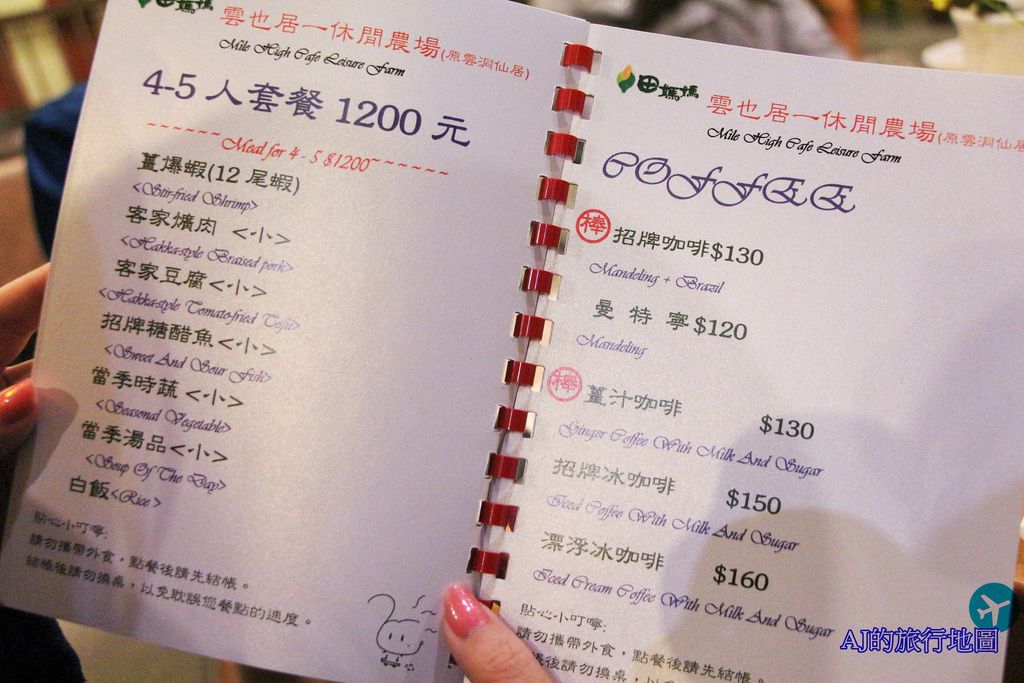 田媽媽
雲也居一休閒農場(原雲洞仙居)
Mile High Cafe Leisure Farm
4-5 人套餐 1200 元
~~~~~~Meal for 4 - 5 $1200~~~~~~
薑爆蝦(12 尾蝦)
<Stir-fried Shrimp>
客家爌肉 <小>
<Hakka-style Braised pork>
客家豆腐<小>
<Hakka-style Tomato-fried Tofu>
招牌糖醋魚<小>
<Sweet And Sour Fish>
當季時蔬 <小>
<Seasonal Vegetable>
當季湯品<小>
<Soup Of The Day>
白飯<Rice>
貼心小叮嚀:
請勿攜帶外食，點餐後請先結帳。
結帳後請勿換桌，以免耽誤您餐點的速度。
田媽媽
雲也居一休閒農場(原雲洞仙居
Mile High Cafe Leisure Farm
COFFEE
棒 招牌咖啡$130
Mandeling + Brazil
曼特寧$120
Mandeling
棒 薑汁咖啡 $130
Ginger Coffee With Milk And Sugar
招牌冰咖啡 $150
Iced Coffee With Milk And Sugar
漂浮冰咖啡 $160
Iced Cream Coffee With Milk And Sugar
貼心小叮嚀:
請勿攜帶外食，點餐後請先結帳。
帳後請勿換桌，以免
AJ的旅行地圖